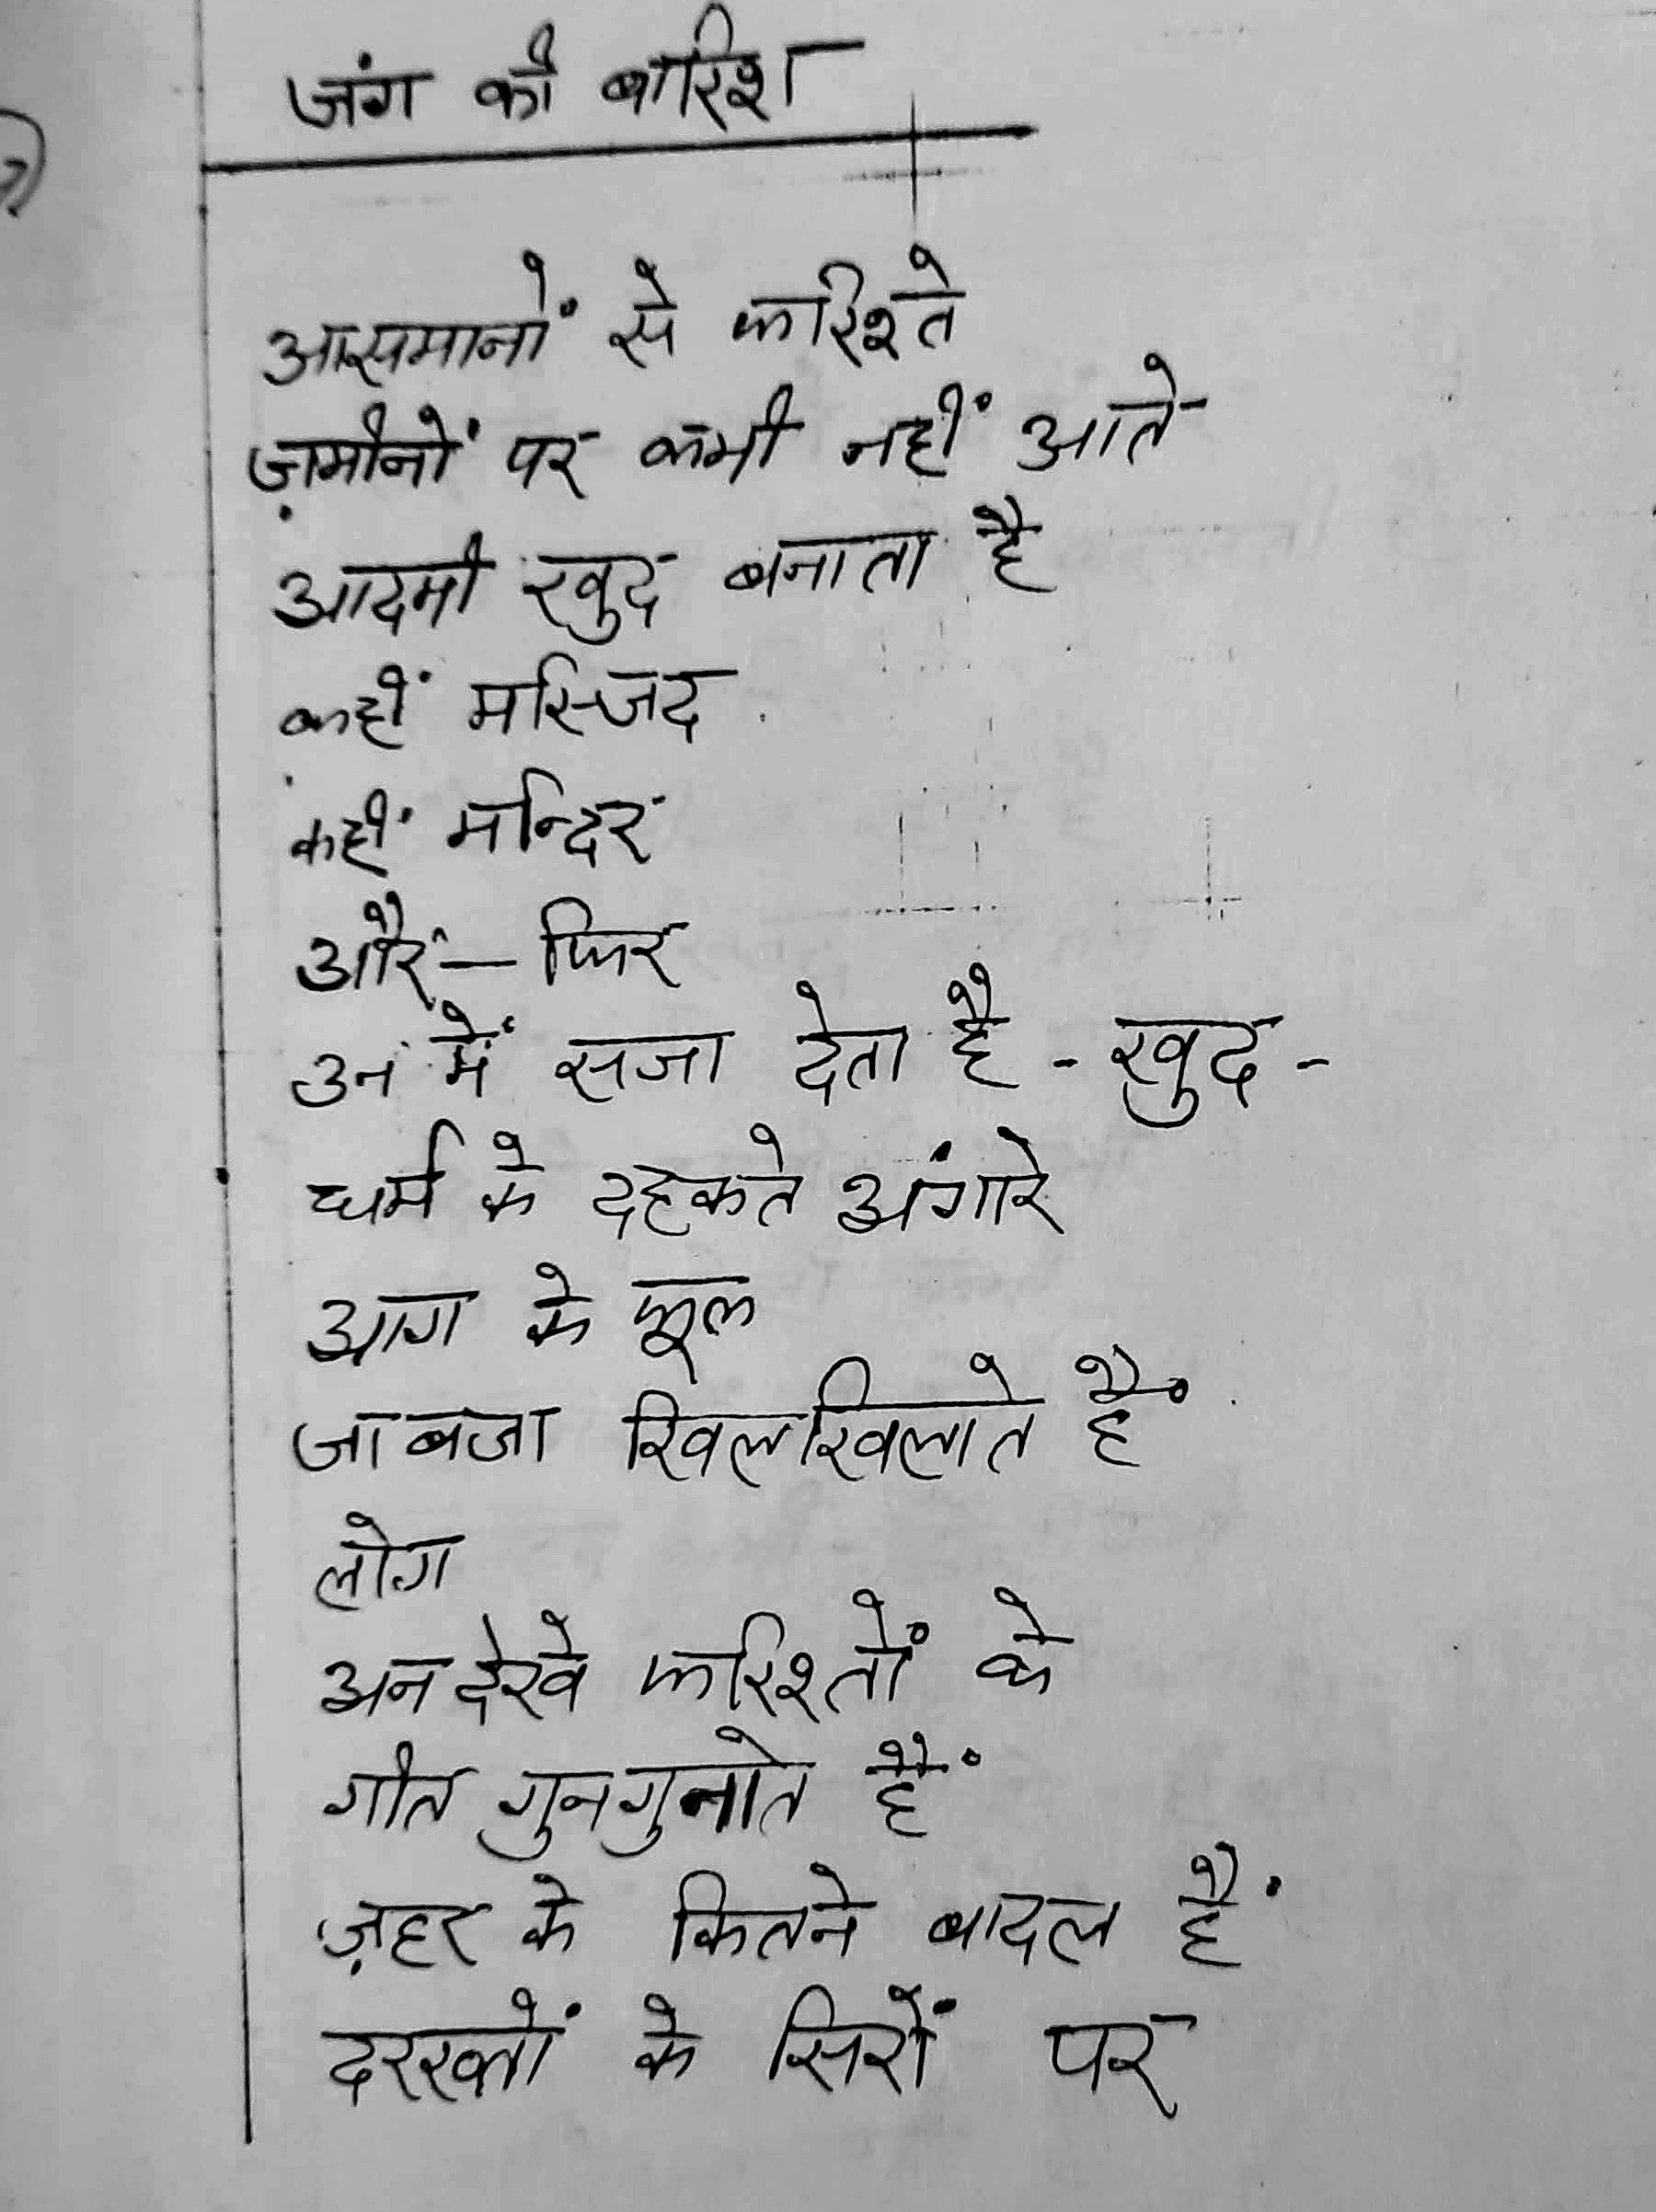 जंग की बारिश
आसमानों से फरिश्ते
ज़मीनों पर कभी नहीं आते
आदमी खुद बनाता है
कहीं मस्जिद
कहीं मन्दिर
और — फिर
उन में सजा देता है - खुद -
धर्म के दहकते अंगारे
आग के फूल
जा बजा खिलखिलाते हैं
लोग
अन देखे फरिश्तों के
गीत गुनगुनाते हैं
ज़हर के कितने बादल हैं
दरख्तों के सिरों पर